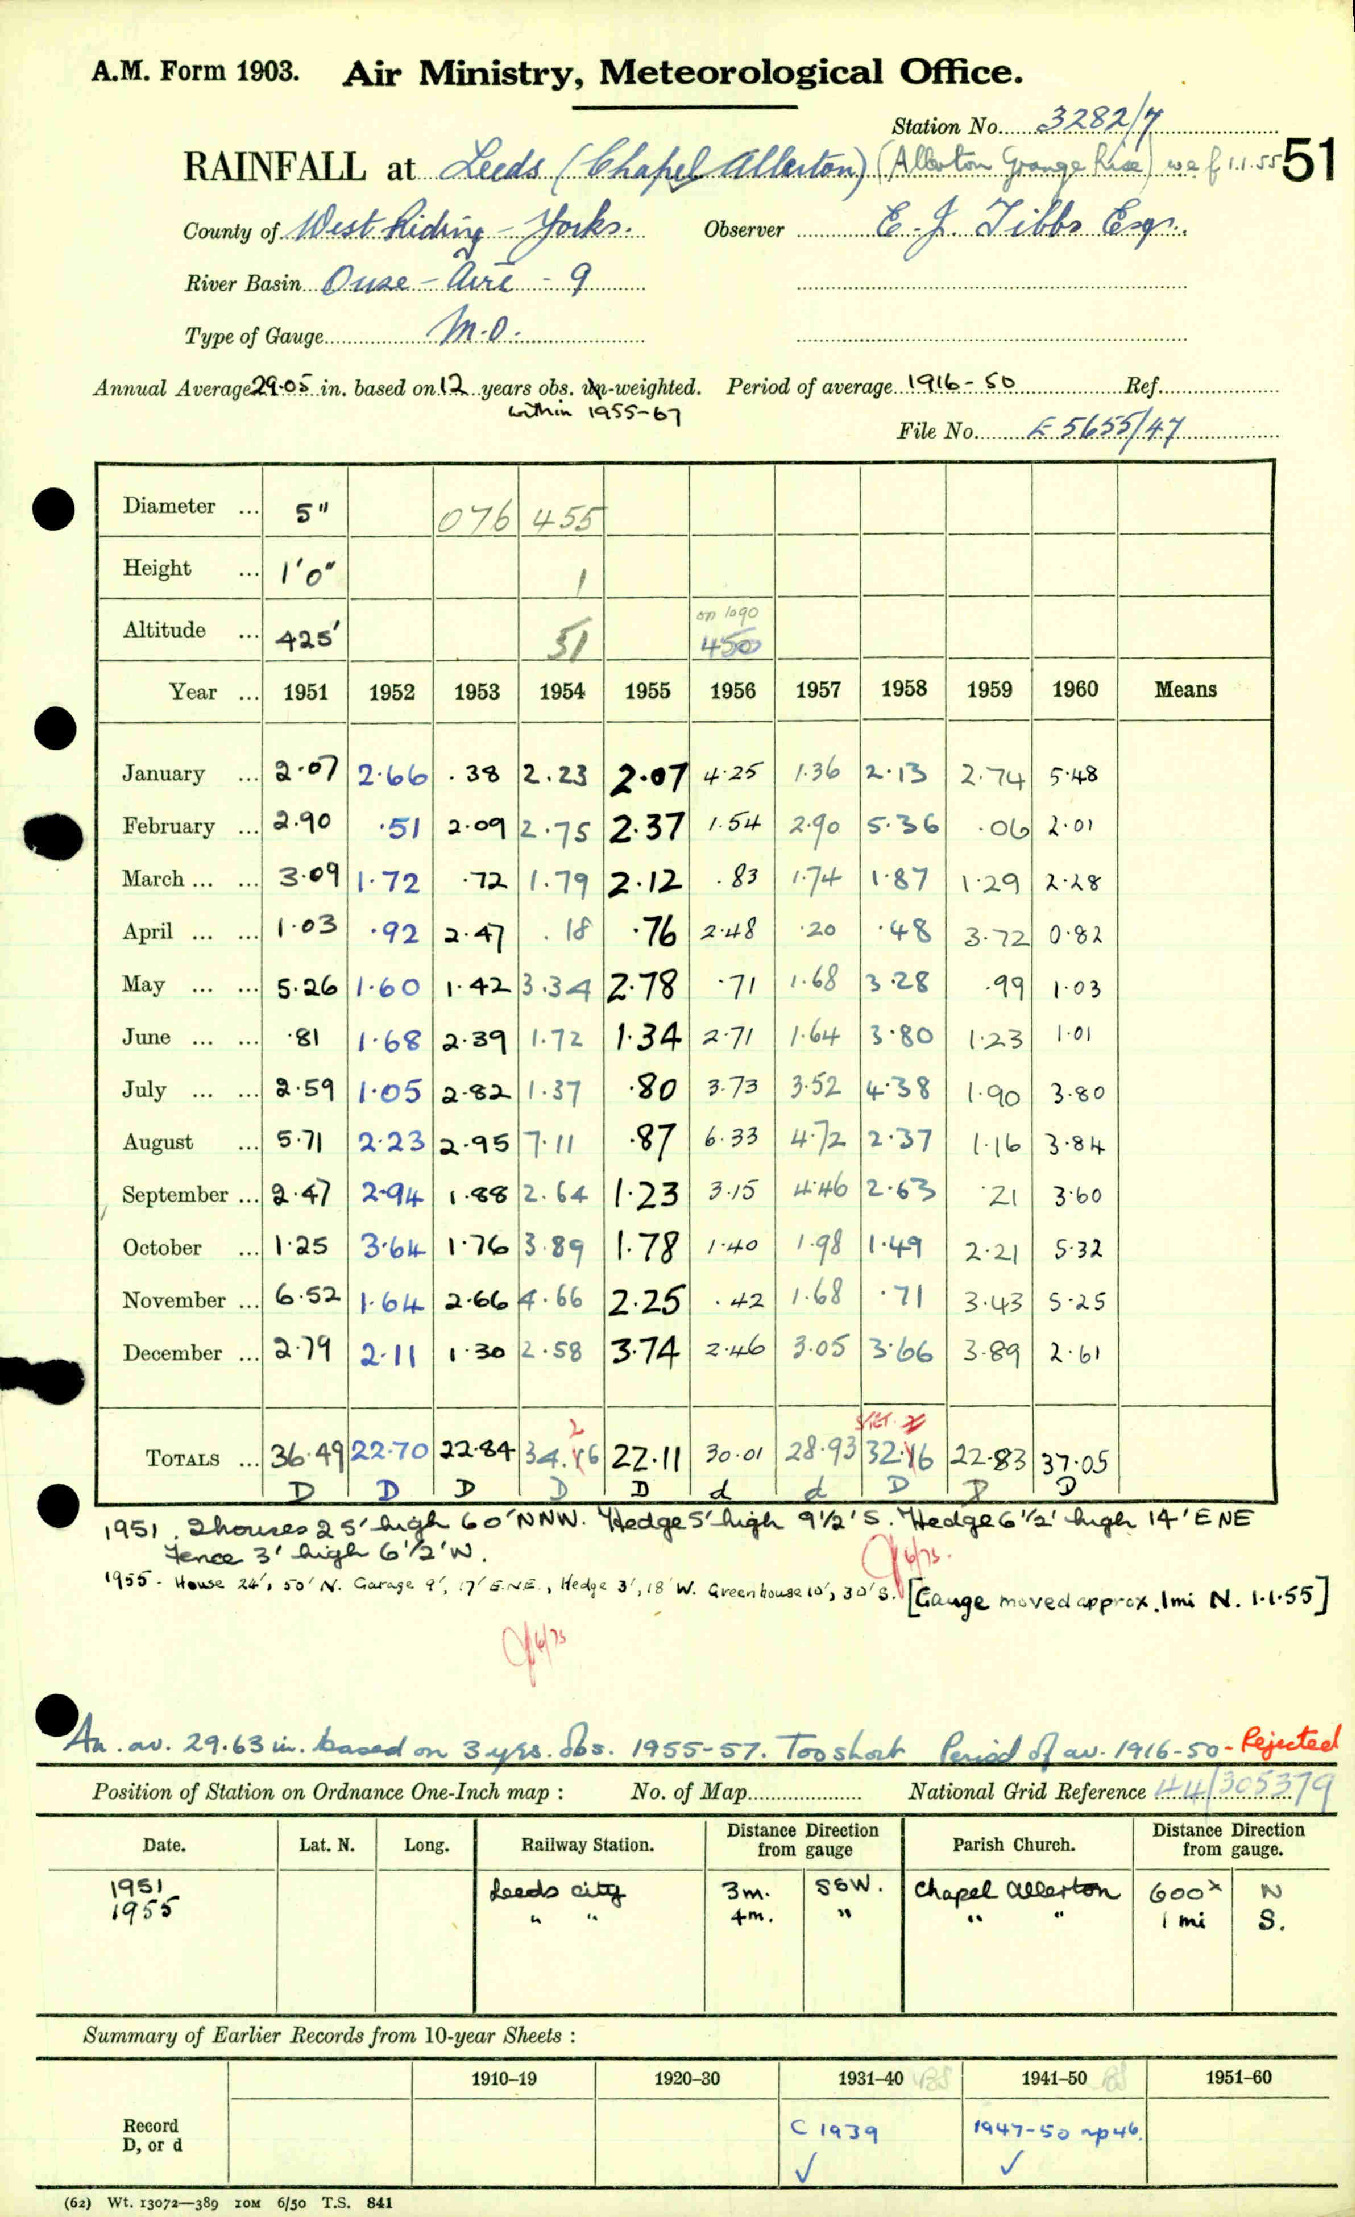 A.M. Form 1903. Air Ministry, Meteorological Office.
Station No. 3282/7
RAINFALL at Leeds (Chapel Allerton) (Allerton Grange Rise) wef 1.1.55 51
County of West Riding - Yorks. Observer E. J. Tibbs Esqr.
River Basin Ouse - Aire - 9
Type of Gauge M.O.
Annual Average 29.05 in. based on 12 years obs. un-weighted. Period of average 1916-50 Ref.
within 1955-67
File No. E 5655/47
Diameter ... 5" 076 455
Height ... 1'0" 1
on 1090
Altitude ... 425' 51 450
Year ... 1951 1952 1953 1954 1955 1956 1957 1958 1959 1960 Means
January ... 2.07 2.66 .38 2.23 2.07 4.25 1.36 2.13 2.74 5.48
February ... 2.90 .51 2.09 2.75 2.37 1.54 2.90 5.36 .06 2.01
March ... ... 3.09 1.72 .72 1.79 2.12 .83 1.74 1.87 1.29 2.28
April ... ... 1.03 .92 2.47 .18 .76 2.48 .20 .48 3.72 0.82
May ... ... 5.26 1.60 1.42 3.34 2.78 .71 1.68 3.28 .99 1.03
June ... ... .81 1.68 2.39 1.72 1.34 2.71 1.64 3.80 1.23 1.01
July ... ... 2.59 1.05 2.82 1.37 .80 3.73 3.52 4.38 1.90 3.80
August ... 5.71 2.23 2.95 7.11 .87 6.33 4.72 2.37 1.16 3.84
September ... 2.47 2.94 1.88 2.64 1.23 3.15 4.46 2.63 .21 3.60
October ... 1.25 3.64 1.76 3.89 1.78 1.40 1.98 1.49 2.21 5.32
November ... 6.52 1.64 2.66 4.66 2.25 .42 1.68 .71 3.43 5.25
December ... 2.79 2.11 1.30 2.58 3.74 2.46 3.05 3.66 3.89 2.61
2 STET
TOTALS ... 36.49 22.70 22.84 34.16 22.11 30.01 28.93 32.16 22.83 37.05
D D D D D d d D D D
1951. 2 houses 25' high 60' NNW. Hedge 5' high 9½' S. Hedge 6½' high 14' ENE
Fence 3' high 6½' W.
6/73.
1955 - House 24', 50' N. Garage 9', 17' E.N.E., Hedge 3', 18' W. Greenhouse 10', 30' S. [Gauge moved approx. 1mi N. 1.1.55]
6/73
An. av. 29.63 in. based on 3 yrs. obs. 1955-57. Too short Period of av. 1916-50 - Rejected
Position of Station on Ordnance One-Inch map : No. of Map National Grid Reference 44/305379
Date. Lat. N. Long. Railway Station. Distance from Direction gauge Parish Church. Distance from Direction gauge.
1951 Leeds city 3m. SSW. Chapel Allerton 600x N
1955 " " 4m. " " " 1 mi S.
Summary of Earlier Records from 10-year Sheets :
1910–19 1920–30 1931–40 1941–50 1951–60
Record
D, or d C 1939 1947-50 np46.
✓ ✓
(62) Wt. 13072—389 10M 6/50 T.S. 841